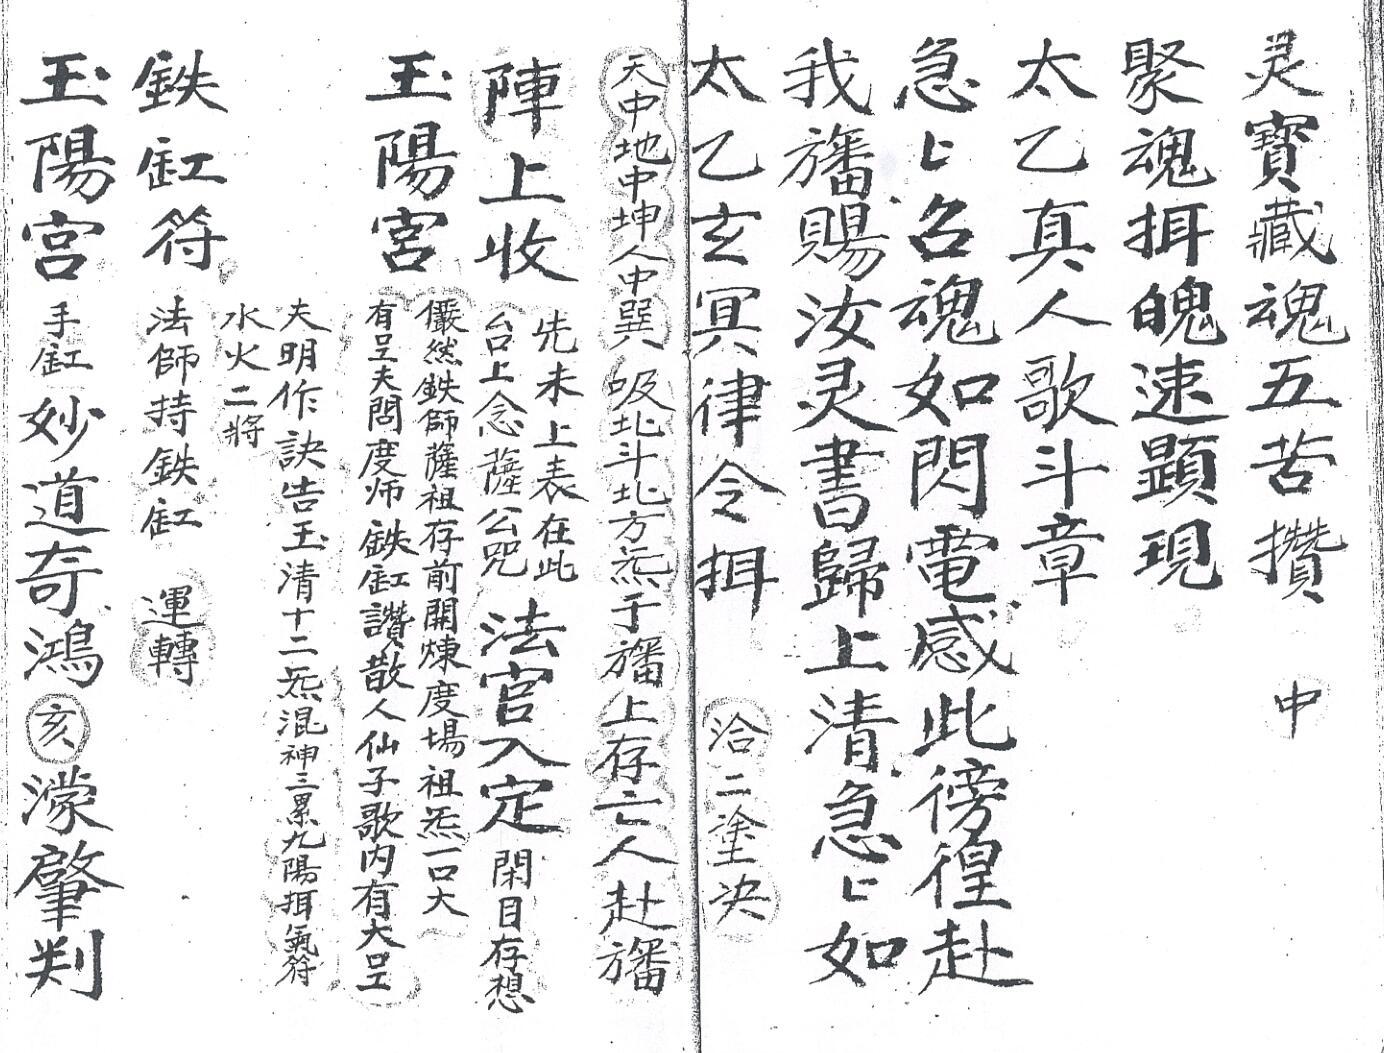 灵寶藏魂五苦攢 中
聚魂挕魄速顕現
太乙真人歌斗章
急〻名魂如閃電感此徬徨赴
我旛賜汝灵書歸上清急〻如
太乙玄冥律令挕 洽二塗决
天中地中坤人中巽 吸北斗北方炁于旛上存亡人赴旛
陣上收 先未上表在此
台上念薩公咒 法官入定 閑目存想
儼然鉄師薩祖存前開煉度場祖炁一口大
王陽宮 有呈夫問度师鉄缸讚散人仙子歌内有大呈
夫明作訣告玉清十二炁混神三累九陽挕氣符
水火二將
鉄缸符 法師持鉄缸 運轉
玉陽宮 手缸 妙道奇鴻 亥 濛肇判